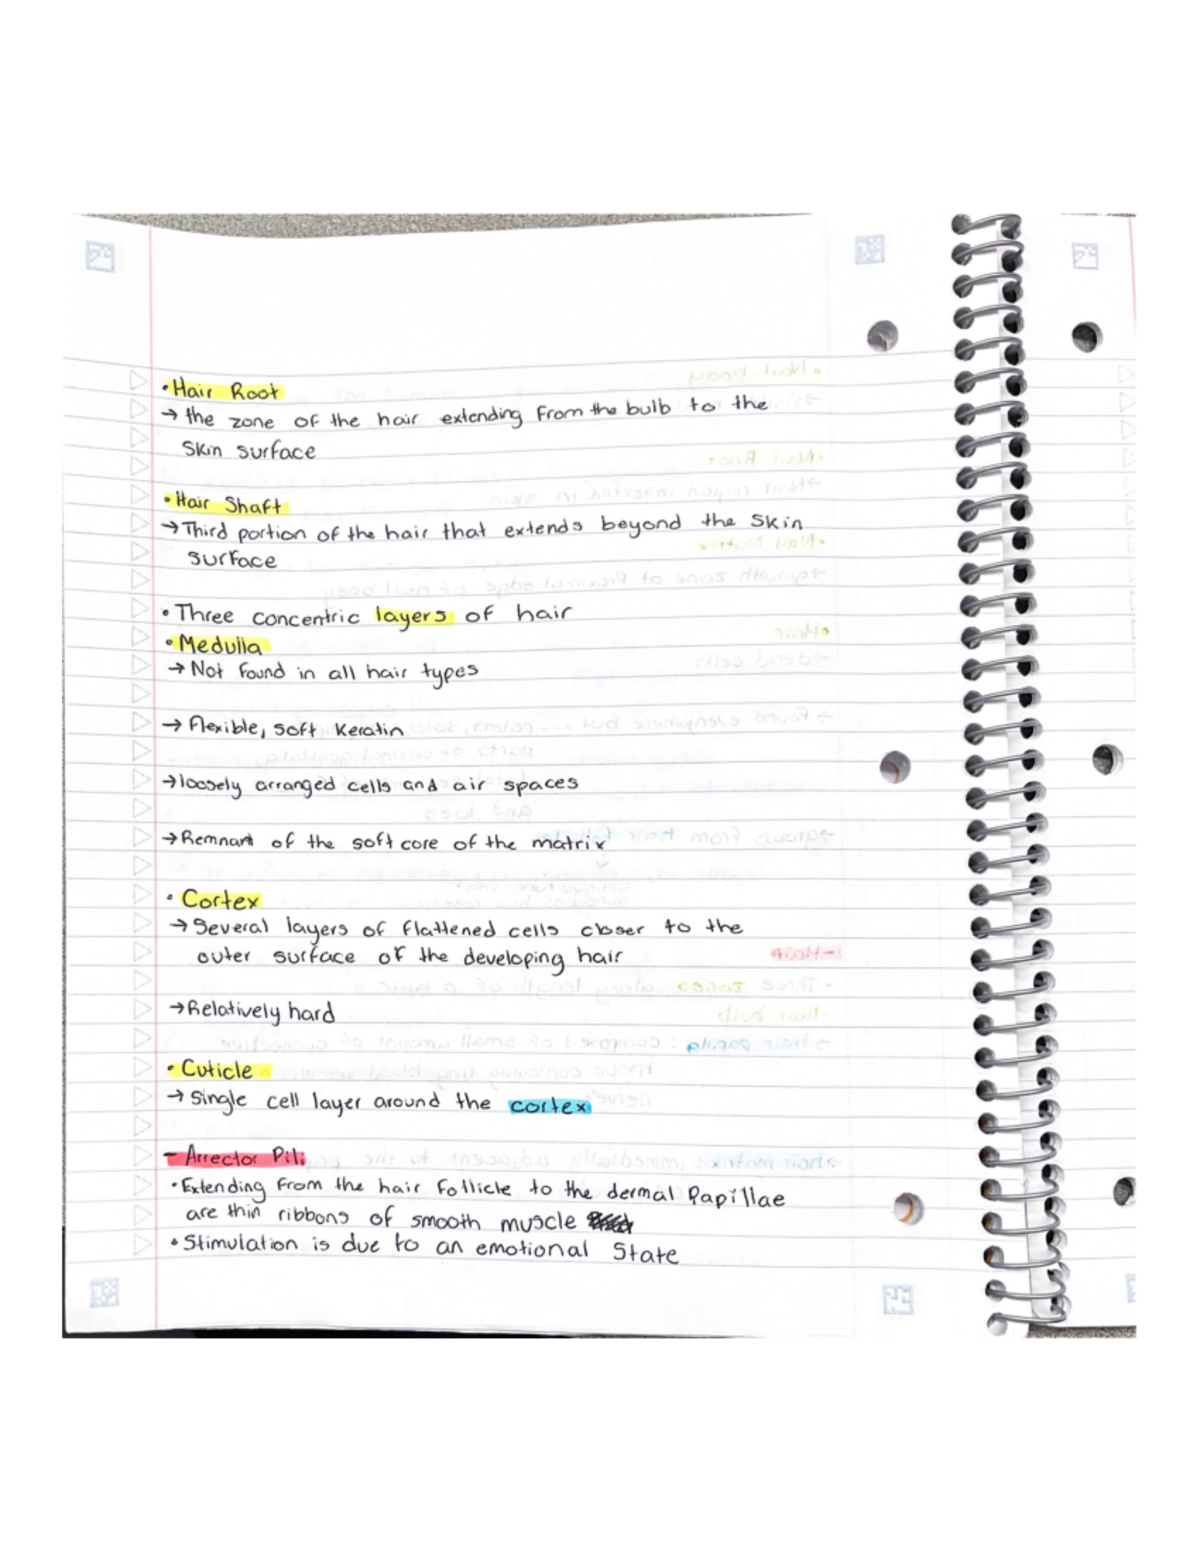 • Hair Root
→ the zone of the hair extending from the bulb to the
skin surface
• Hair Shaft
→ Third portion of the hair that extends beyond the skin
surface
• Three concentric layers of hair
• Medulla
→ Not found in all hair types
→ flexible, soft keratin
→ loosely arranged cells and air spaces
→ Remnant of the soft core of the matrix
• Cortex
→ Several layers of flattened cells closer to the
outer surface of the developing hair
→ Relatively hard
• Cuticle
→ Single cell layer around the cortex
- Arrector Pili
• Extending from the hair follicle to the dermal Papillae
are thin ribbons of smooth muscle
• Stimulation is due to an emotional state